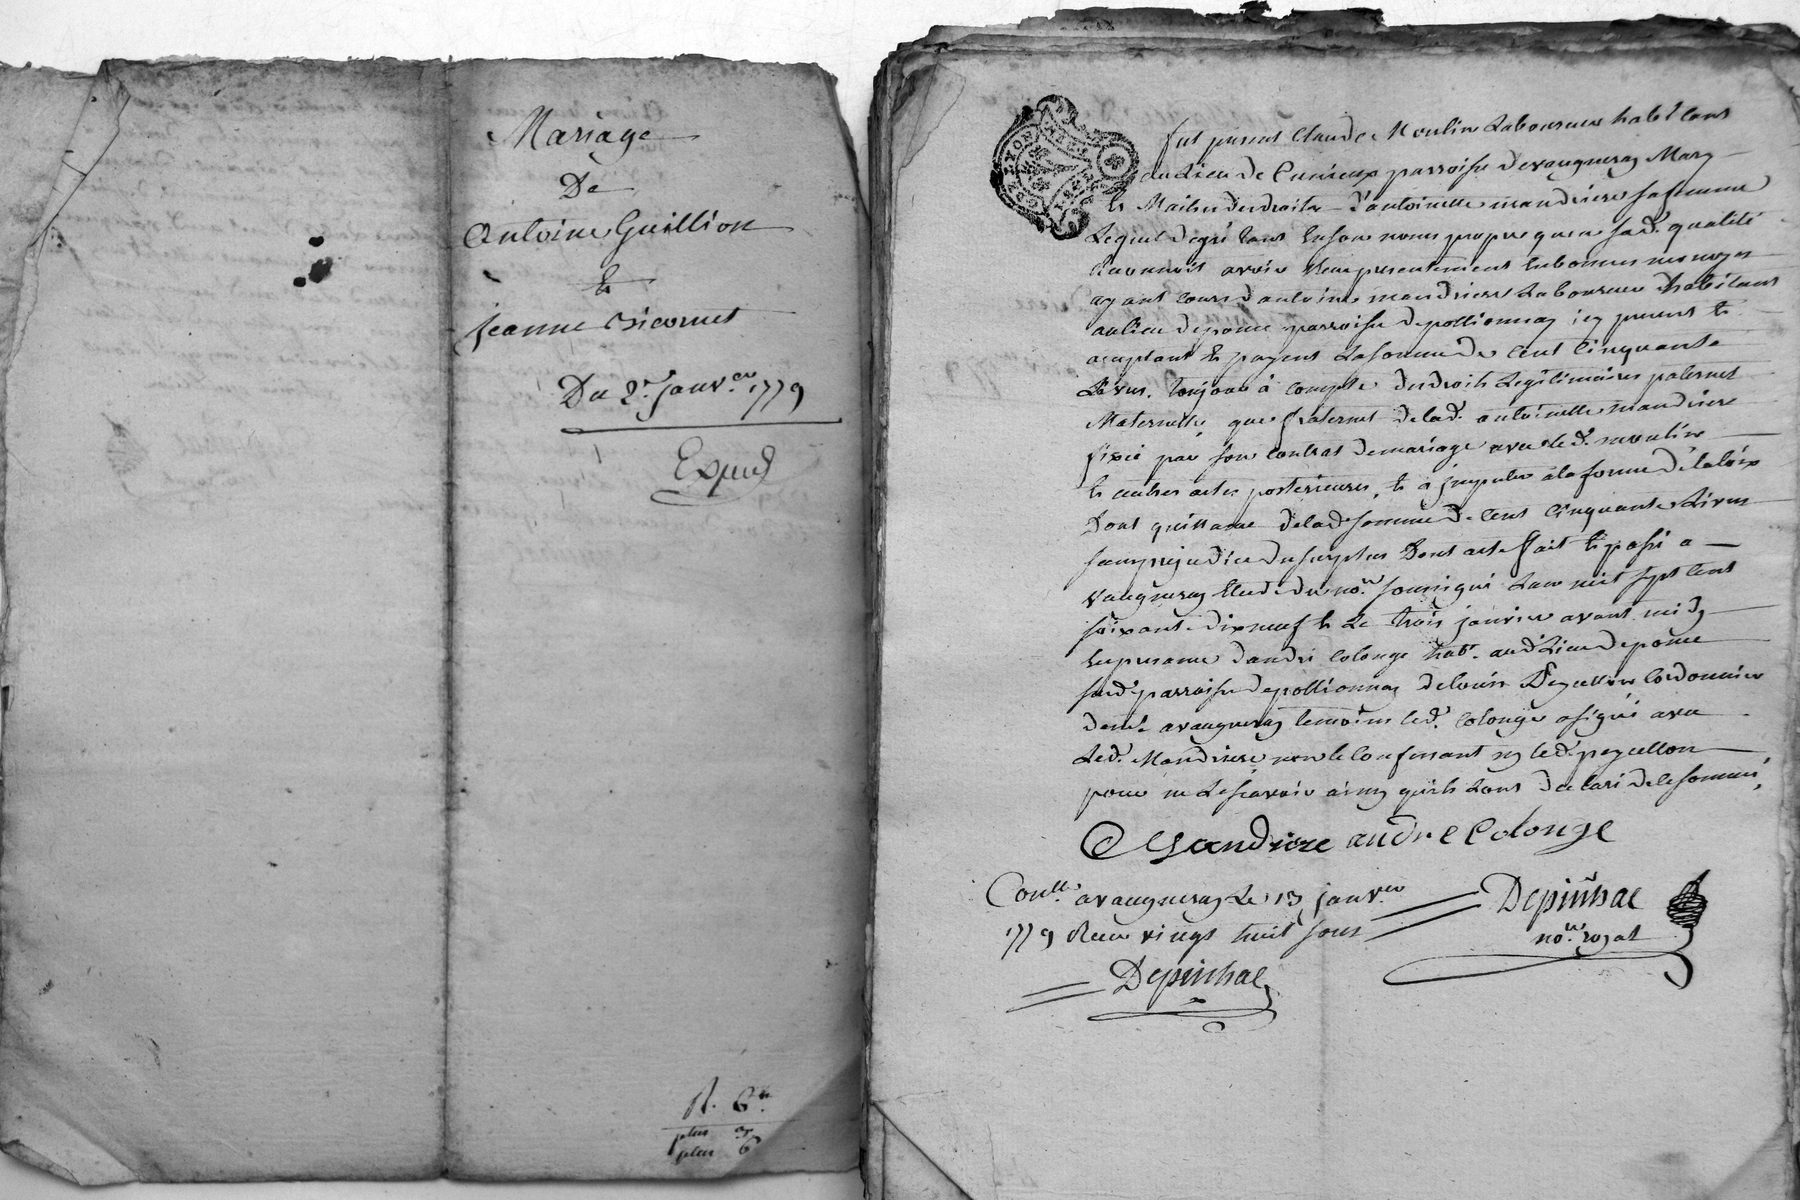 Mariage
De
Antoine Guillion
Et
Jeanne Bicornet
Du 2.r janv.er 1779
Exped
R. 6
plus 3
plus 6
fut present Claude Moulin Laboureur habitant
au Lieu de Recurieux parroisse de vaugneray Mary
et Maitre des droits d'antoinette mandriere sa femme
Lequel de gré tant En son nom propre qu'en sad. qualité
a reçu presentement En bonnes monoyes
ayant cours d'antoine mandriere Laboureur habitant
au lieu de pome parroisse de pollionnay icy present et
aceptant et payant La somme de Cent Cinquante
Livres, toujour à compte des droits Legitimaires paternel
Maternelle que fraternel de lad. antoinette mandriere
fixée par son contrat de mariage avec led. moulin
et autres actes posterieures, et à jmputer a la forme de la loix
Dont quittance de lade somme de Cent Cinquante Livres
sans prejudice du surplus Dont acte fait et passé a
vaugneray Etude du no.re soussigné L'an mil sept cent
soixante dix neuf et Le trois janvier avant midy
En presence d'andré Colonge hab.t aud. Lieu de pome
susd. parroisse de pollionnay de Louis Peycellon Cordonnier
dem.t a vaugneray temoins led. Colonge a signé avec
Led. Mandriere non le confessant ny led. peycellon
pour ne Le sçavoir ainsy qu'ils L'ont declaré de ce sommé,
Mandriere andre Colonge
Con.llé a vaugneray Le 13 janv.er
1779 Reçu vingt huit sous
Depinhac
no.re royal
Depinhac